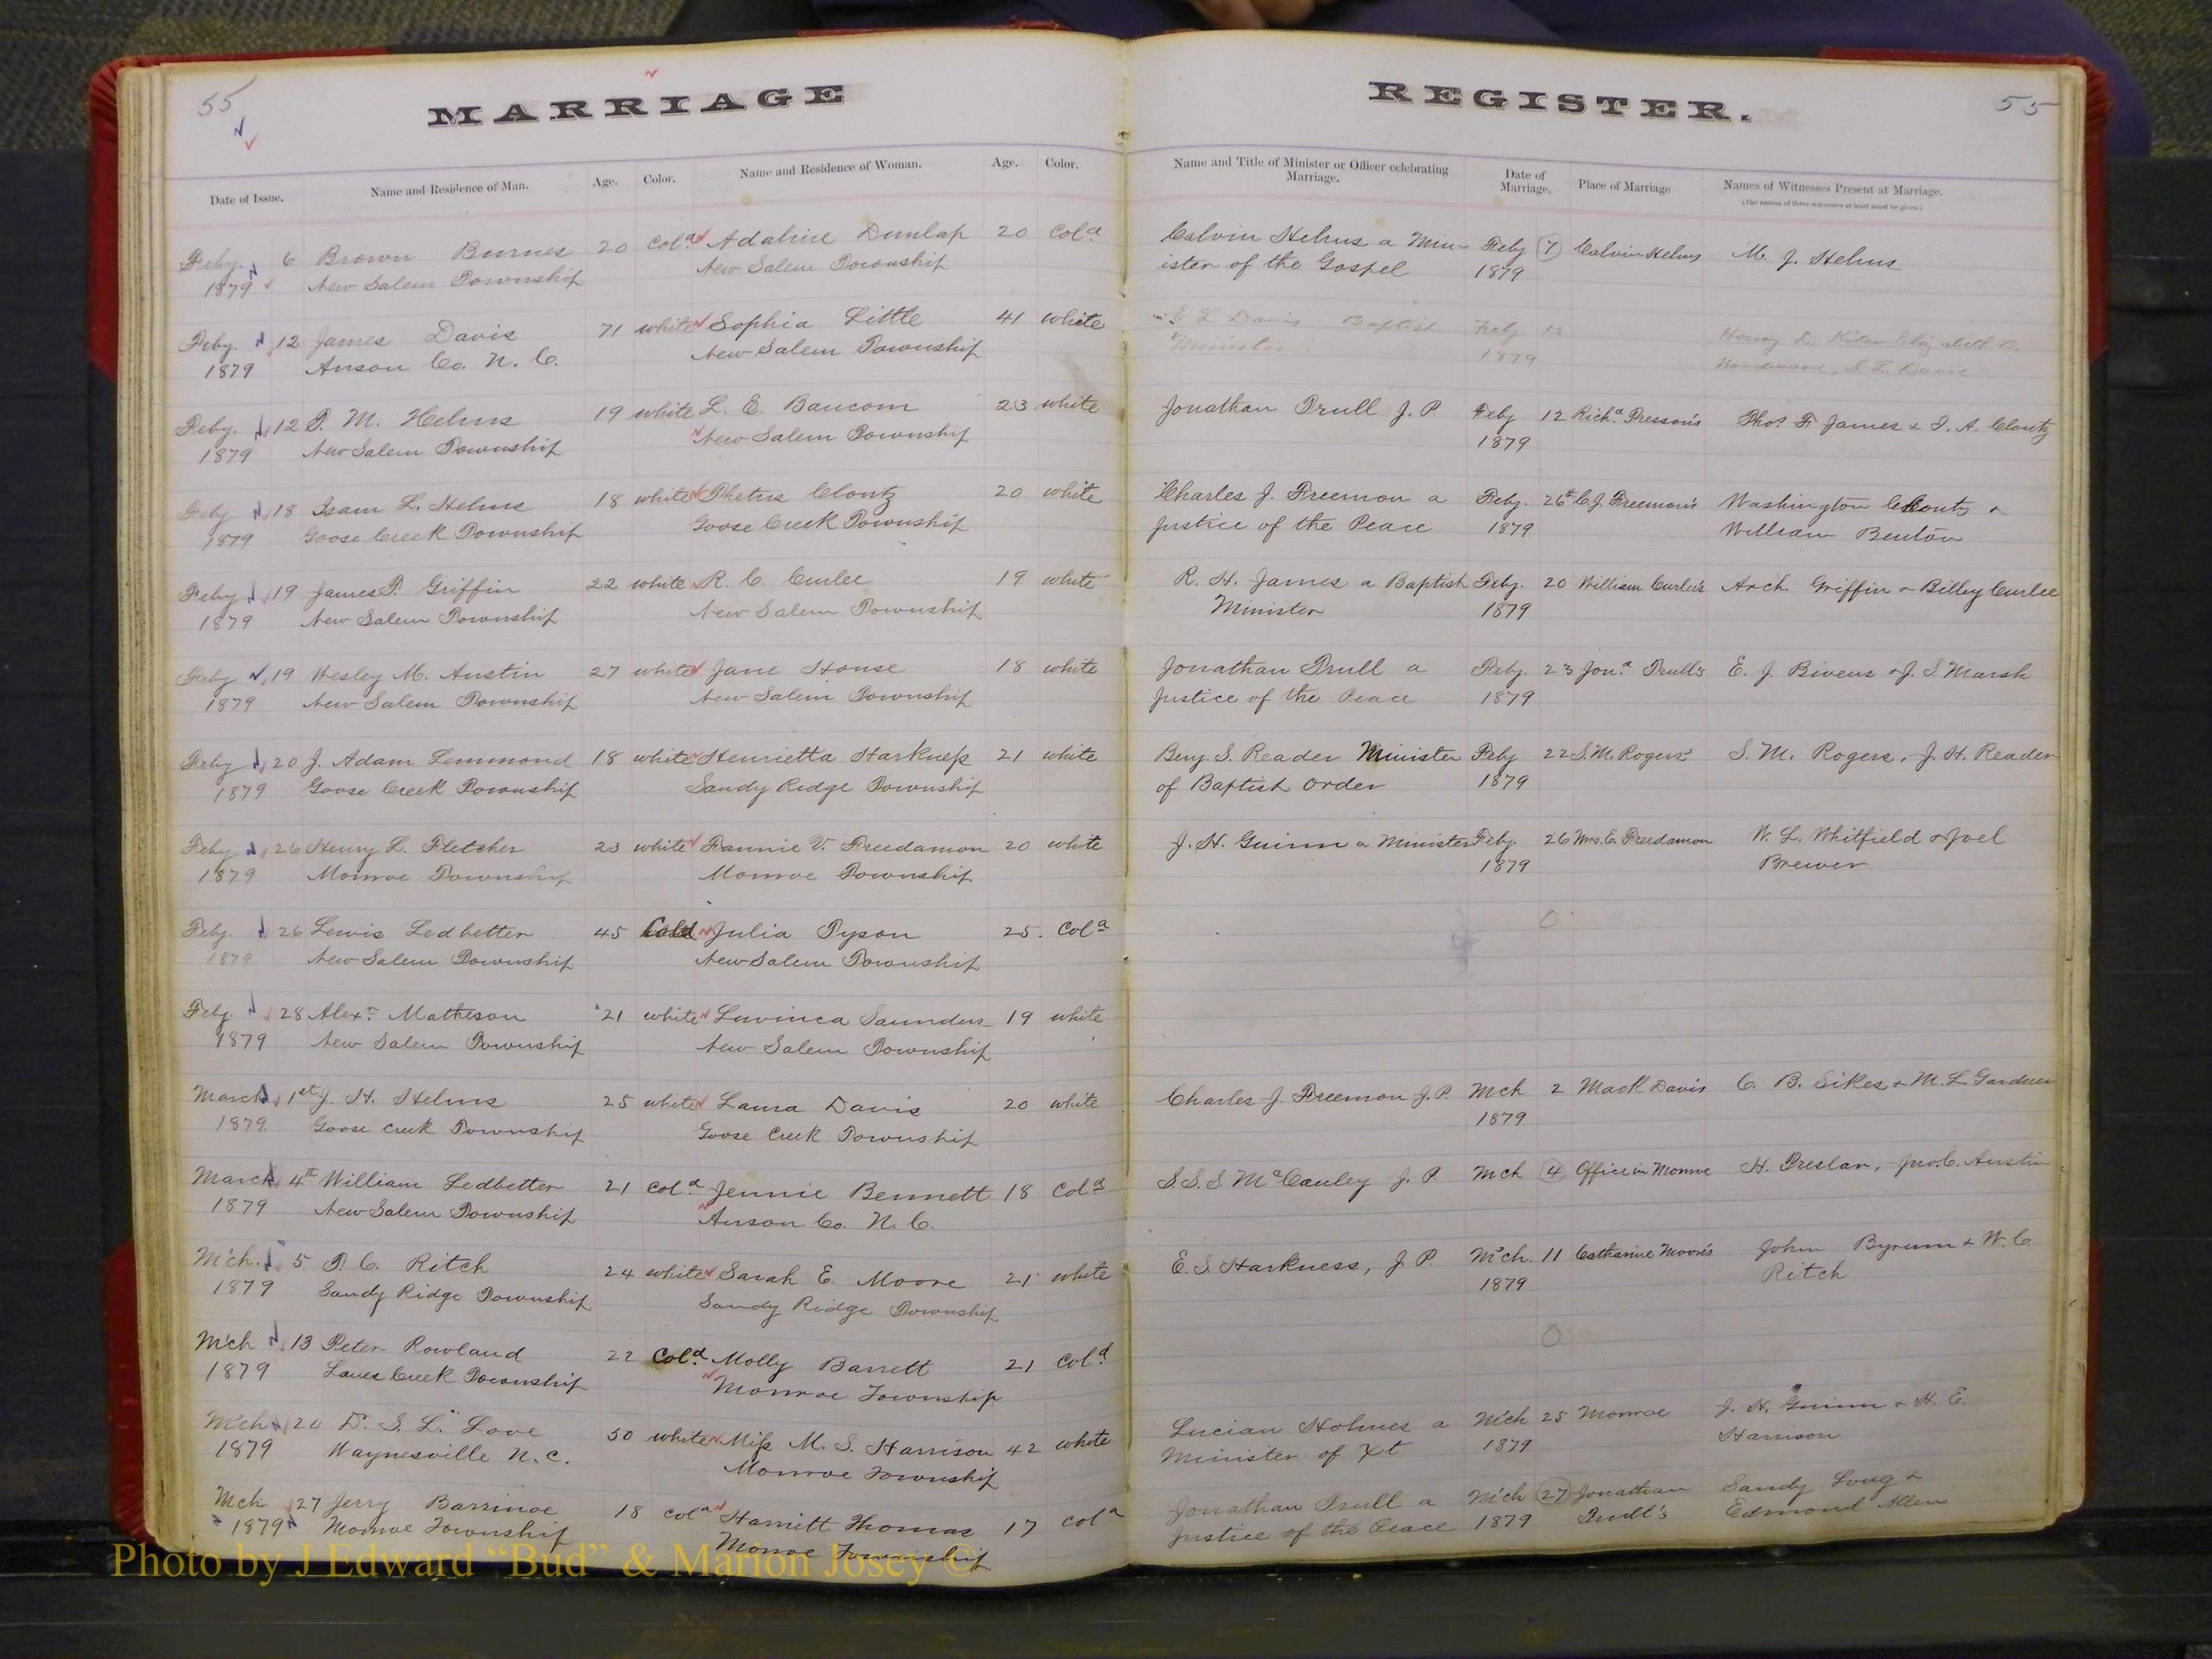 55
MARRIAGE
REGISTER.
55
Date of Issue. Name and Residence of Man. Age. Color. Name and Residence of Woman. Age. Color. Name and Title of Minister or Officer celebrating Marriage. Date of Marriage. Place of Marriage Names of Witnesses Present at Marriage.
(The names of three witnesses at least must be given)
Feby. 6 Brown Burnes 20 Cold Adaline Dunlap 20 Cold Calvin Helms a Min- Feby 7 Calvin Helms M. J. Helms
1879 New Salem Township New Salem Township ister of the Gospel 1879
Feby. 12 James Davis 71 white Sophia Little 41 white E L Davis Baptist Feby 13 Henry
1879 Anson Co. N. C. New Salem Township Minister 1879 S. L. Davis
Feby. 12 T. M. Helms 19 white L. E. Baucom 23 white Jonathan Trull J. P. Feby 12 Richd. Presson's Thos. F James & I. A. Clontz
1879 New Salem Township New Salem Township 1879
Feby 18 Isam L. Helms 18 white Phetus Clontz 20 white Charles J. Freemon a Feby. 26th C. J. Freemon's Washington Clontz &
1879 Goose Creek Township Goose Creek Township Justice of the Peace 1879 William Benton
Feby 19 James P. Griffin 22 white R. C. Curlee 19 white R. H. James a Baptist Feby. 20 William Curlee's Arch. Griffin & Billey Curlee
1879 New Salem Township New Salem Township Minister 1879
Feby 19 Wesley M. Austin 27 white Jane House 18 white Jonathan Trull a Feby. 23 Jona. Trull's E. J. Bivens & J. S. Marsh
1879 New Salem Township New Salem Township Justice of the Peace 1879
Feby 20 J. Adam Lemmond 18 white Henrietta Harkness 21 white Benj. S. Reader Minister Feby 22 S. M. Rogers' S. M. Rogers, J. H. Reader
1879 Goose Creek Township Sandy Ridge Township of Baptist order 1879
Feby 26 Henry L. Fletcher 23 white Fannie V. Freedamon 20 white J. H. Guinn a Minister Feby. 26 Mrs. E. Freedamon W. L. Whitfield & Joel
1879 Monroe Township Monroe Township 1879 Brewer
Feby. 26 Lewis Ledbetter 45 Cold Julia Tyson 25. Cold 0
1879 New Salem Township New Salem Township
Feby. 28 Alexr. Matheson 21 white Luvinca Saunders 19 white
1879 New Salem Township New Salem Township
March 1st J. H. Helms 25 white Laura Davis 20 white Charles J. Freemon J. P. Mch 2 Mack Davis C. B. Sikes & M. L. Gardner
1879. Goose Creek Township Goose Creek Township 1879
March 4th William Ledbetter 21 Cold Jennie Bennett 18 Cold S. S. S. McCauley J. P. Mch 4 Office in Monroe H. Preslar, Jno. C. Austin
1879 New Salem Township Anson Co. N. C.
Mch. 5 T. C. Ritch 24 white Sarah E. Moore 21 white E. S. Harkness, J. P. Mch. 11 Catharine Moore's John Byrum & W. C.
1879 Sandy Ridge Township Sandy Ridge Township 1879 Ritch
Mch 13 Peter Rowland 22 Cold Molly Barrett 21 Cold 0
1879 Lanes Creek Township Monroe Township
Mch 24 Dr. S. L. Love 50 white Miss M. S. Harrison 42 white Lucian Holmes a Mch 25 Monroe J. H. Guinn & H. E.
1879 Waynesville N. C. Monroe Township Minister of Xt 1879 Harrison
Mch 27 Jerry Barrinoe 18 cold Harritt Thomas 17 cold Jonathan Trull a Mch 27 Jonathan Sandy Long &
1879 Monroe Township Monroe Township Justice of the Peace 1879 Trull's Edmond Allen
Photo by J Edward “Bud” & Marion Josey ©